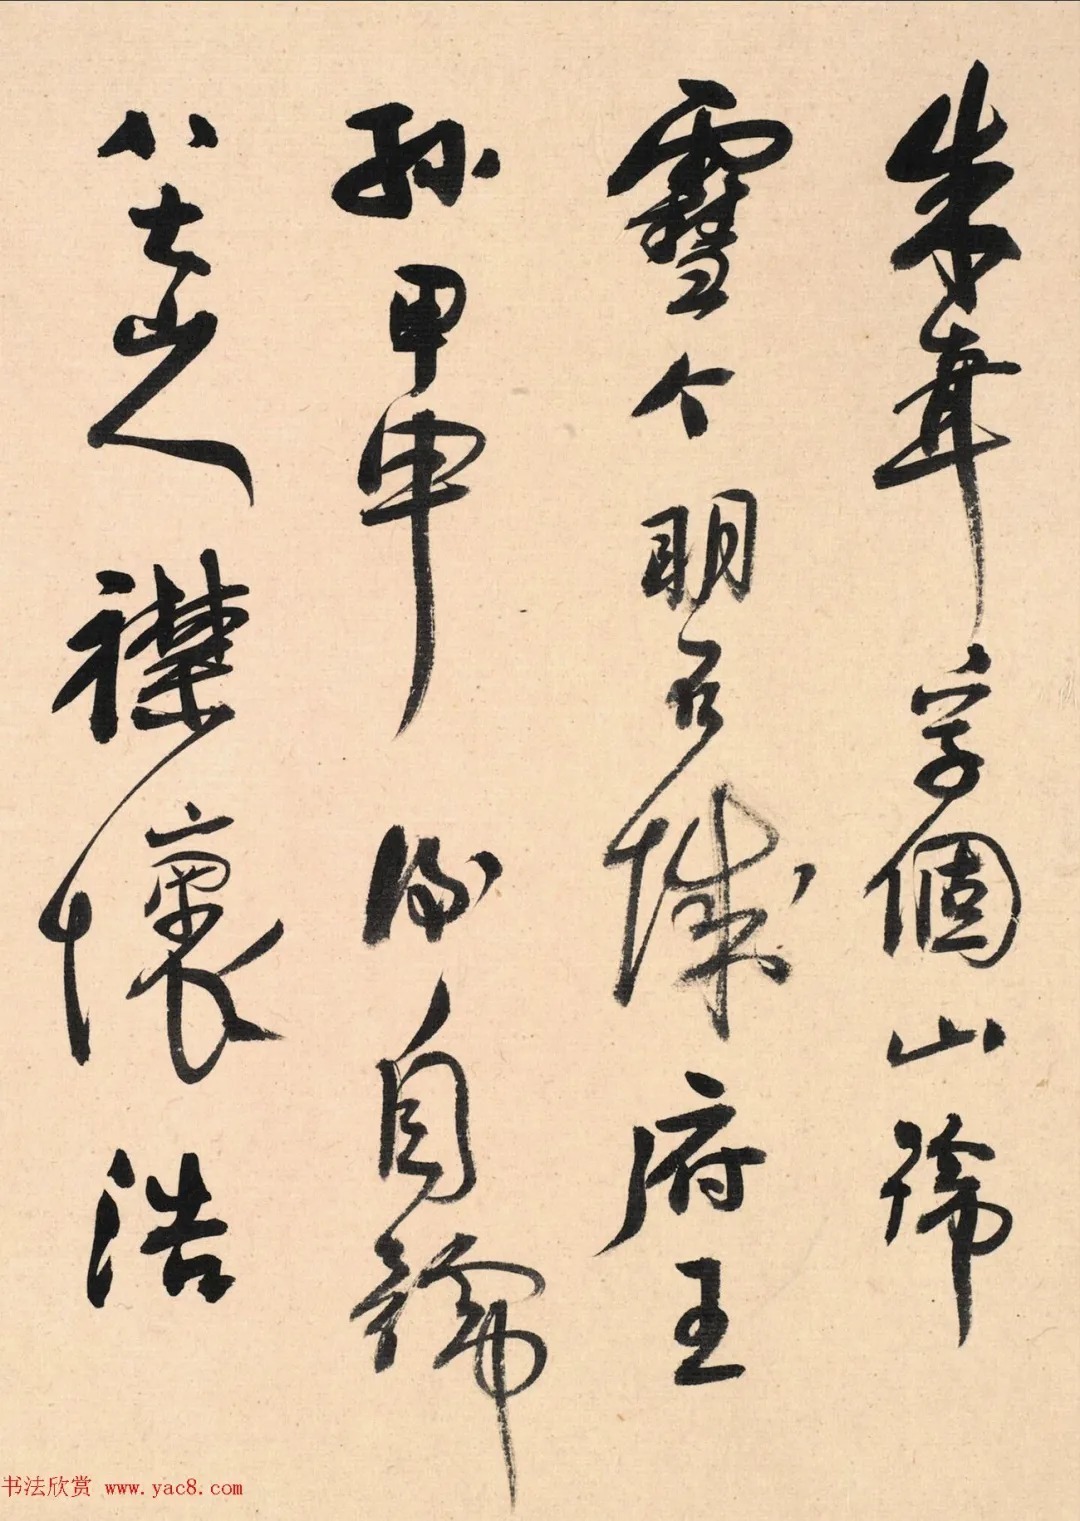 朱耷字個山號
雪个明石城府王
孫甲申後自號
八大山人襟懷浩
书法欣赏 www.yac8.com